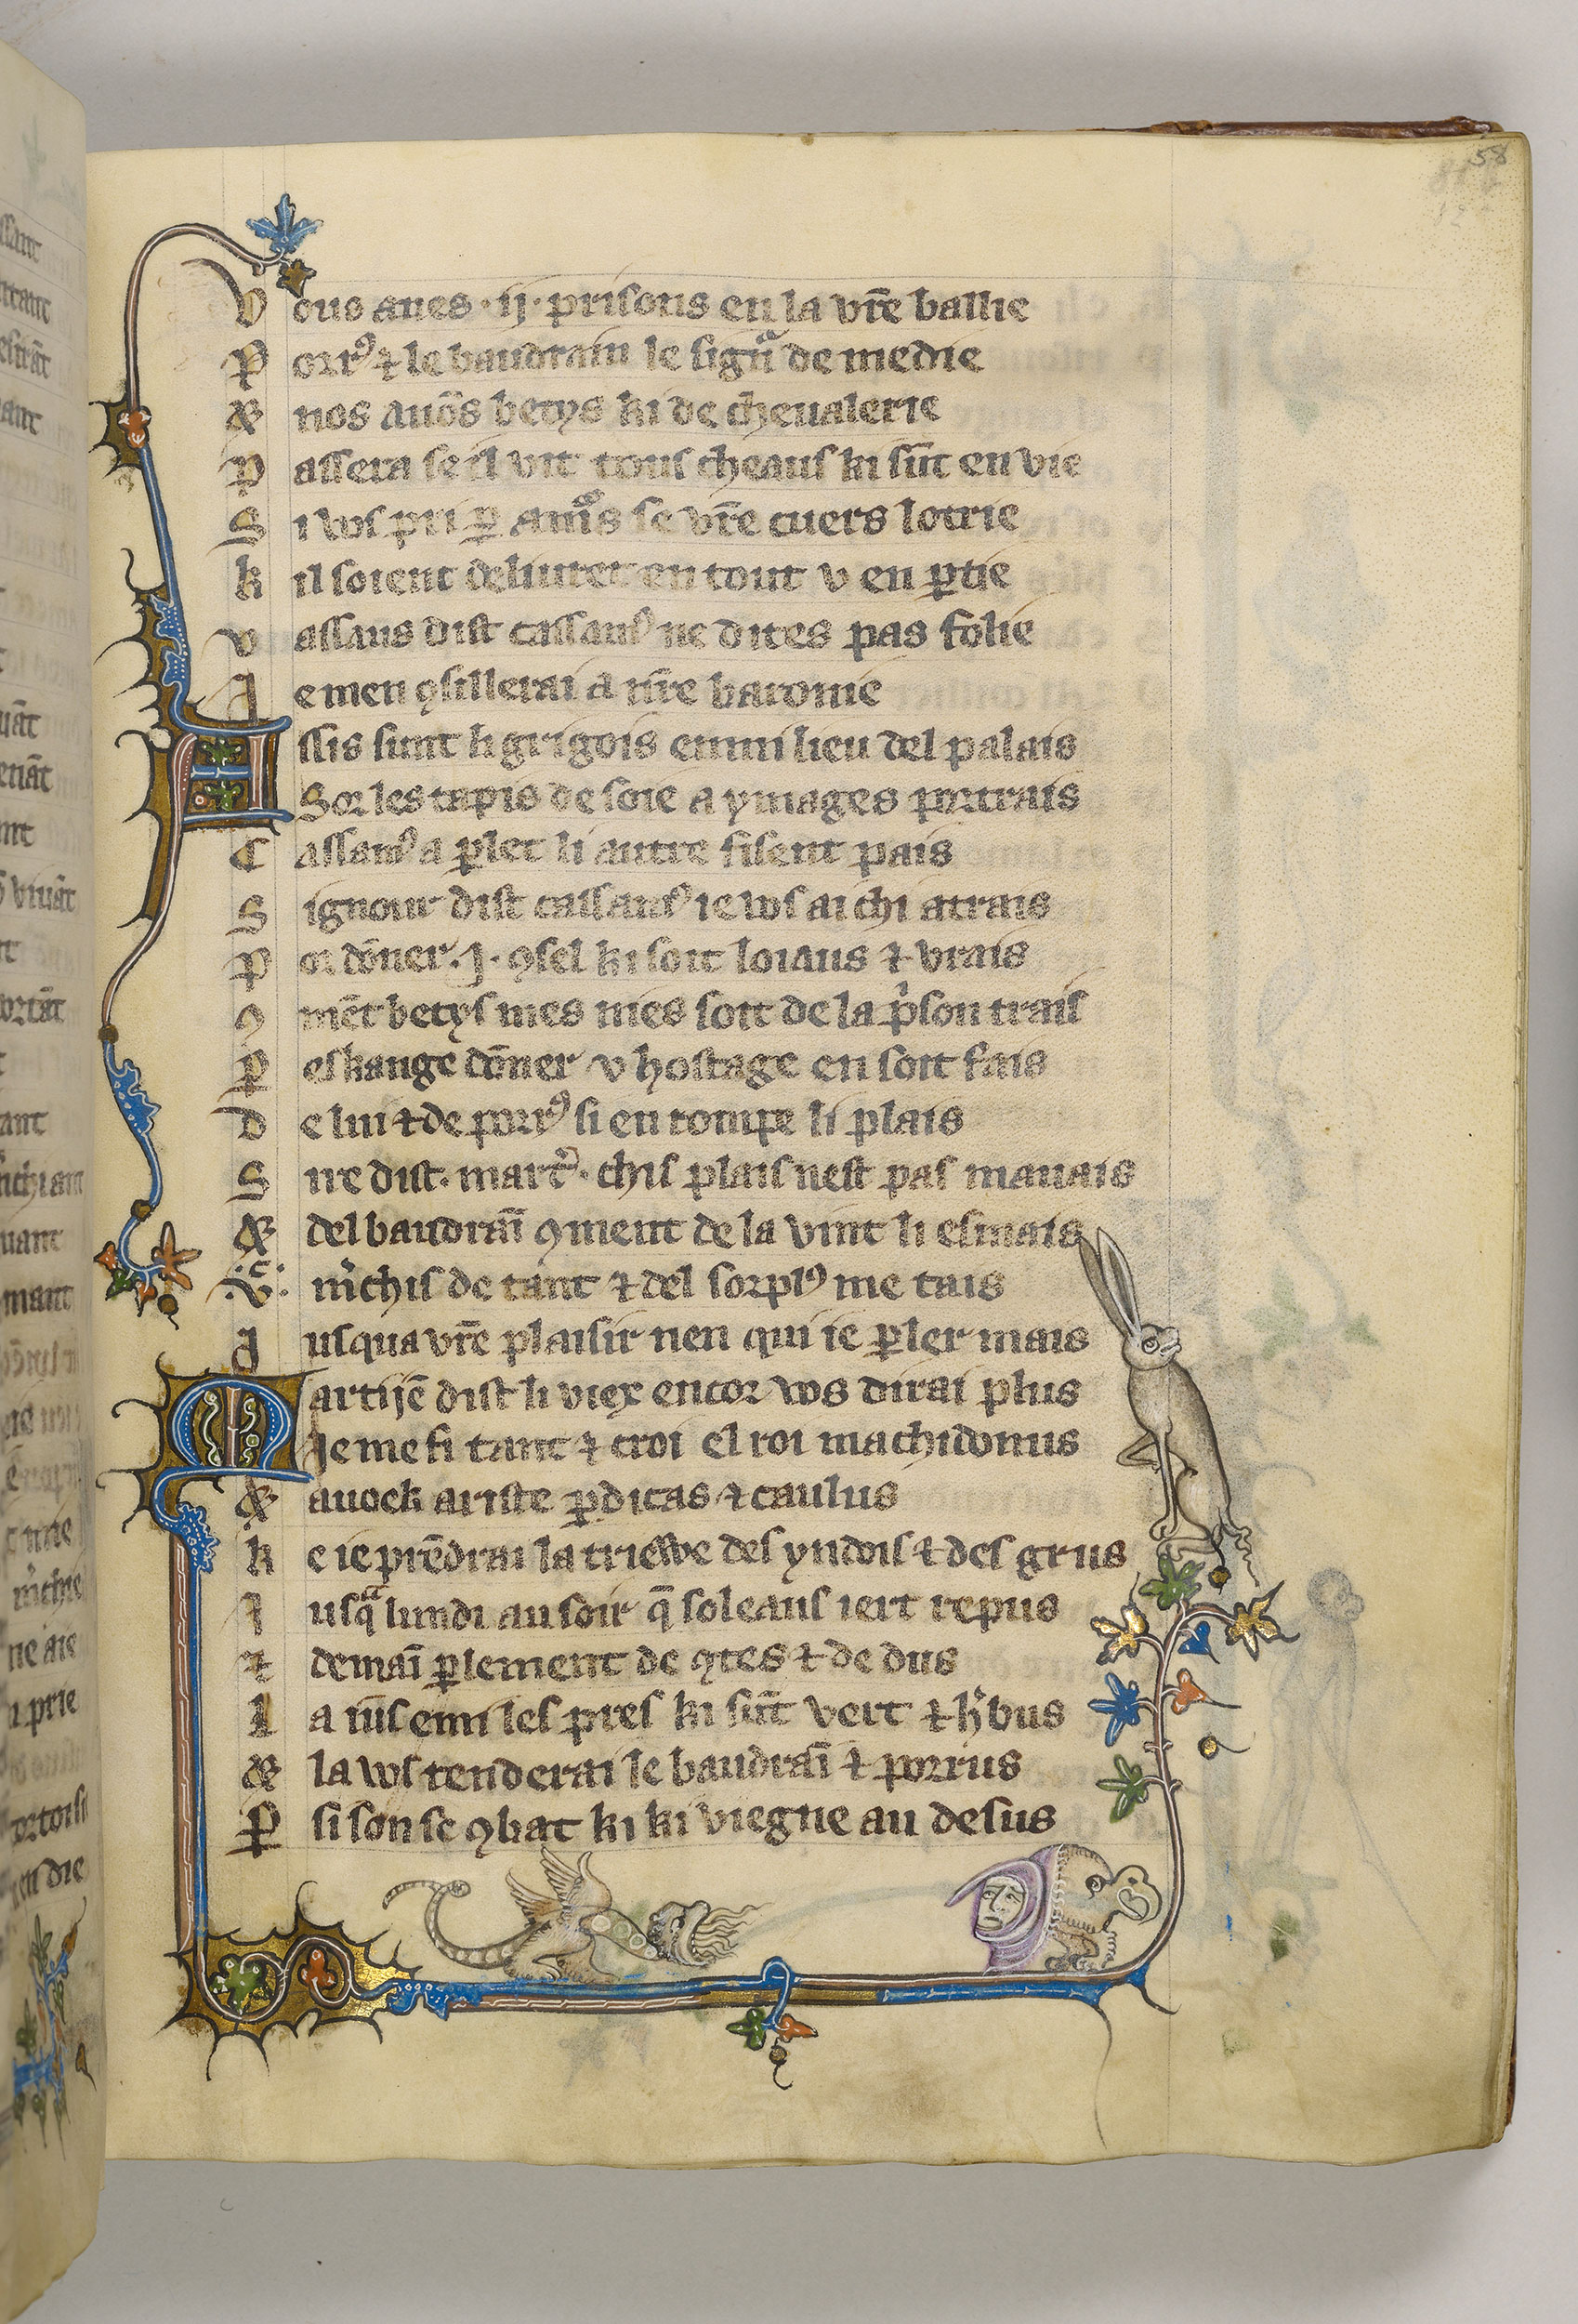 58
Vous aues · ij · prisons en la vr̄e ballie
Porrꝰ ⁊ le baudrain le sign͛ de medie
Et nos auōs betys ki de ch̄eualerie
Passera se il vit tous cheaus ki sūt en vie
Si ws pri ꝑ amͦs se vr̄e cuers lotrie
Kil soient deliuret en tout v en ꝑtie
Vassaus dist cassamꝰ ne dites pas folie
Je men ꝯsillerai a nr̄e baronie
Assis sunt li grigois enmi lieu del palais
Sor les tapis de soie a ymages portrais
Cassamꝰ a ꝑlet li autre fisent pais
Signour dist cassamꝰ ie ws ai chi atrais
Por dōner · j · ꝯsel ki soit loiaus ⁊ vrais
ꝯmēt betys mes nies soit de la pͥson trais
Ꝑ eskange dōner v hostage en soit fais
De lui ⁊ de porrꝰ si en rompe li plais
Sire dist · mart͛ · chis plais nest pas mauais
Et del baudraī ꝯment de la vint li esmais
· V ·ͨ mͥchis de tant ⁊ del sorplꝰ me tais
Jusqua vr̄e plaisir nen qui ie ꝑler mais
Martijē dist li viex encor ws dirai plus
Je me fi tant ⁊ croi el roi machidonus
Et auoek ariste ꝑdicas ⁊ caulus
Ke ie prēdrai la triewe des yndois ⁊ des grius
Jusqᵃ lundi au soir q̄ soleaus iert repus
⁊ demaī ꝑlement de ꝯtes ⁊ de dus
La ius enmi les pres ki sūt vert ⁊ h͛bus
Et la ws renderai le baudraī ⁊ porrus
Ꝑ si son se ꝯbat ki ki viegne au desus